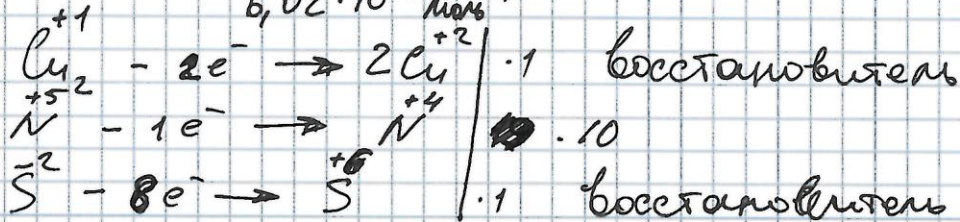 6,02·10 моль
Cu₂⁺¹ - 2e⁻ → 2Cu⁺² | ·1 восстановитель
N⁺⁵ - 1e⁻ → N⁺⁴ | ·10
S⁻² - 8e⁻ → S⁺⁶ | ·1 восстановитель